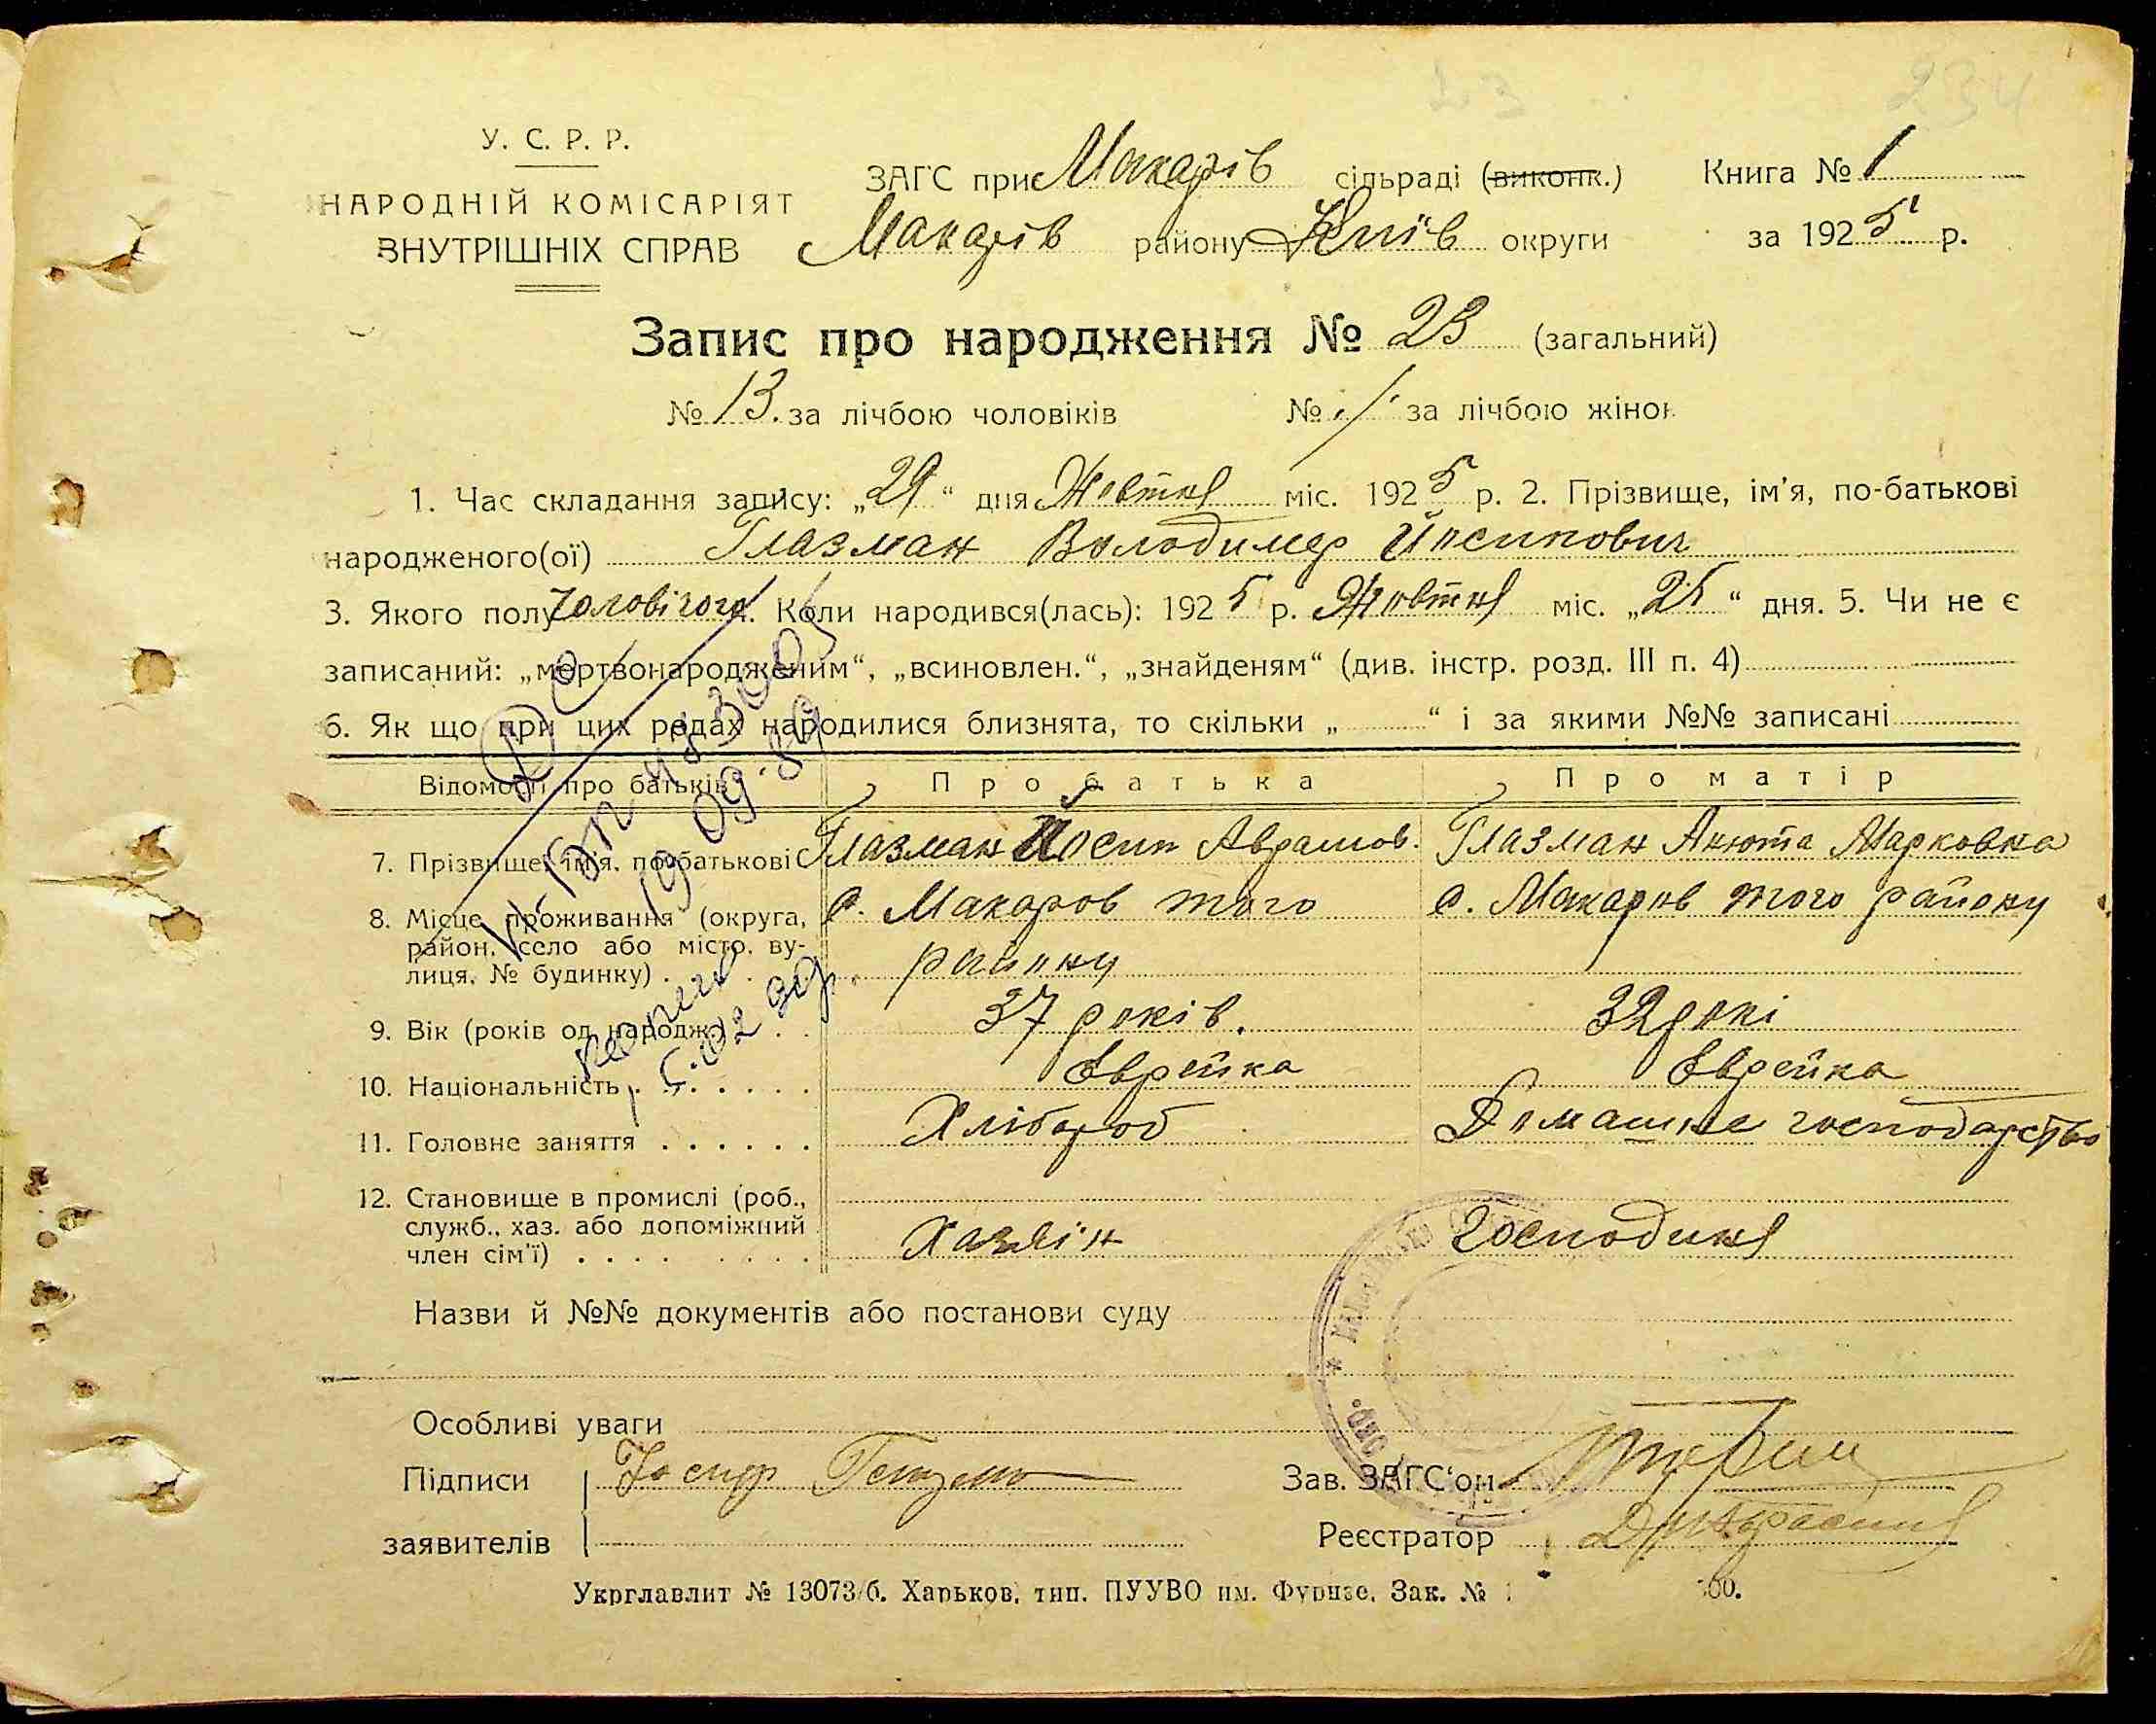 23 234
У. С. Р. Р.
НАРОДНІЙ КОМІСАРІЯТ
ВНУТРІШНІХ СПРАВ
ЗАГС при Макарів сільраді (виконк.) Книга № 1
Макарів району Київ округи за 1925 р.
Запис про народження № 23 (загальний)
№ 13. за лічбою чоловіків № / за лічбою жінок
1. Час складання запису: „29“ дня Жовтня міс. 1925 р. 2. Прізвище, ім'я, по-батькові
народженого(ої) Глазман Володимер Йосипович
3. Якого полу Чоловічого 4. Коли народився(лась): 1925 р. Жовтня міс. „25“ дня. 5. Чи не є
записаний: „мертвонародженим“, „всиновлен.“, „знайденям“ (див. інстр. розд. III п. 4)
6. Як що при цих родах народилися близнята, то скільки „ “ і за якими №№ записані
Відомості про батьків Про батька Про матір
7. Прізвище, ім'я, по-батькові Глазман Йосип Аврамов. Глазман Анюта Марковна
8. Місце проживання (округа, с. Макаров того с. Макаров того району
район, село або місто, ву-
лиця, № будинку) району
9. Вік (років од народж.) 37 років. 32 роки
10. Національність Єврейка Єврейка
11. Головне заняття Хлібороб Домашнє господарство
12. Становище в промислі (роб.,
служб., хаз. або допоміжний
член сім'ї) Хазяїн Господиня
Назви й №№ документів або постанови суду
Особливі уваги
Підписи
Зав. ЗАГС'ом
заявителів
Реєстратор
Укрглавлит № 13073/б. Харьков, тип. ПУУВО им. Фрунзе. Зак. №
19 09.89